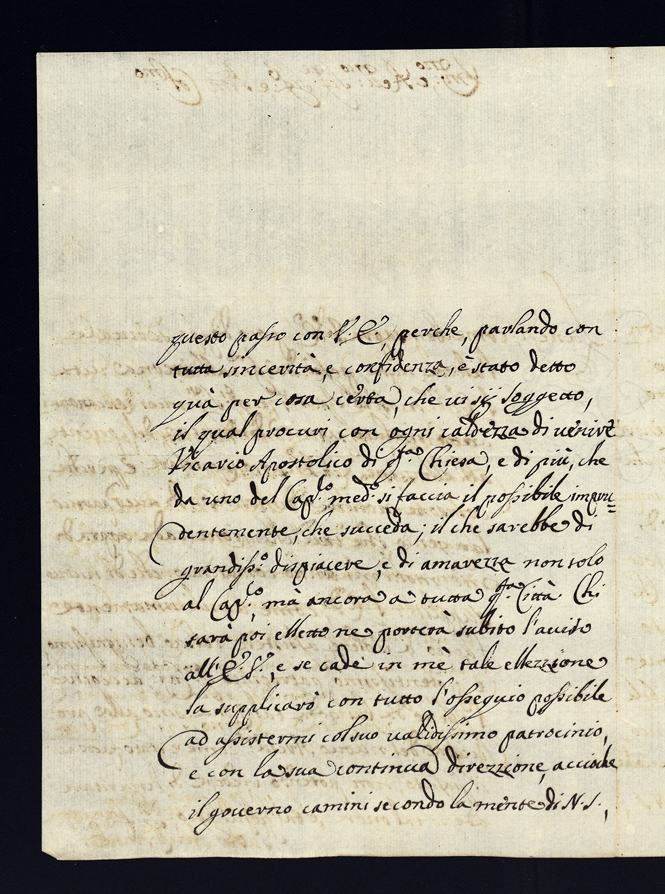 questo passo con V. E., perche, parlando con
tutta sincerità, e confidenza, è stato detto
quà per cosa certa, che ui sij soggetto,
il qual procuri con ogni caldezza di uenire
Vicario Apostolico di q.sta Chiesa, e di più, che
da uno del Cap.lo med.o si faccia il possibile impru=
dentemente, che succeda; il che sarebbe di
grandiss.o dispiacere, e di amarezza non solo
al Cap.lo, mà ancora a tutta q.sta Città. Chi
sarà poi eletto ne porterà subito l'auiso
all' E. V., e se cade in mè tale elezzione
la supplicarò con tutto l'ossequio possibile
ad assistermi col suo ualidissimo patrocinio,
e con la sua continua direzzione, accioche
il gouerno camini secondo la mente di N. S.,